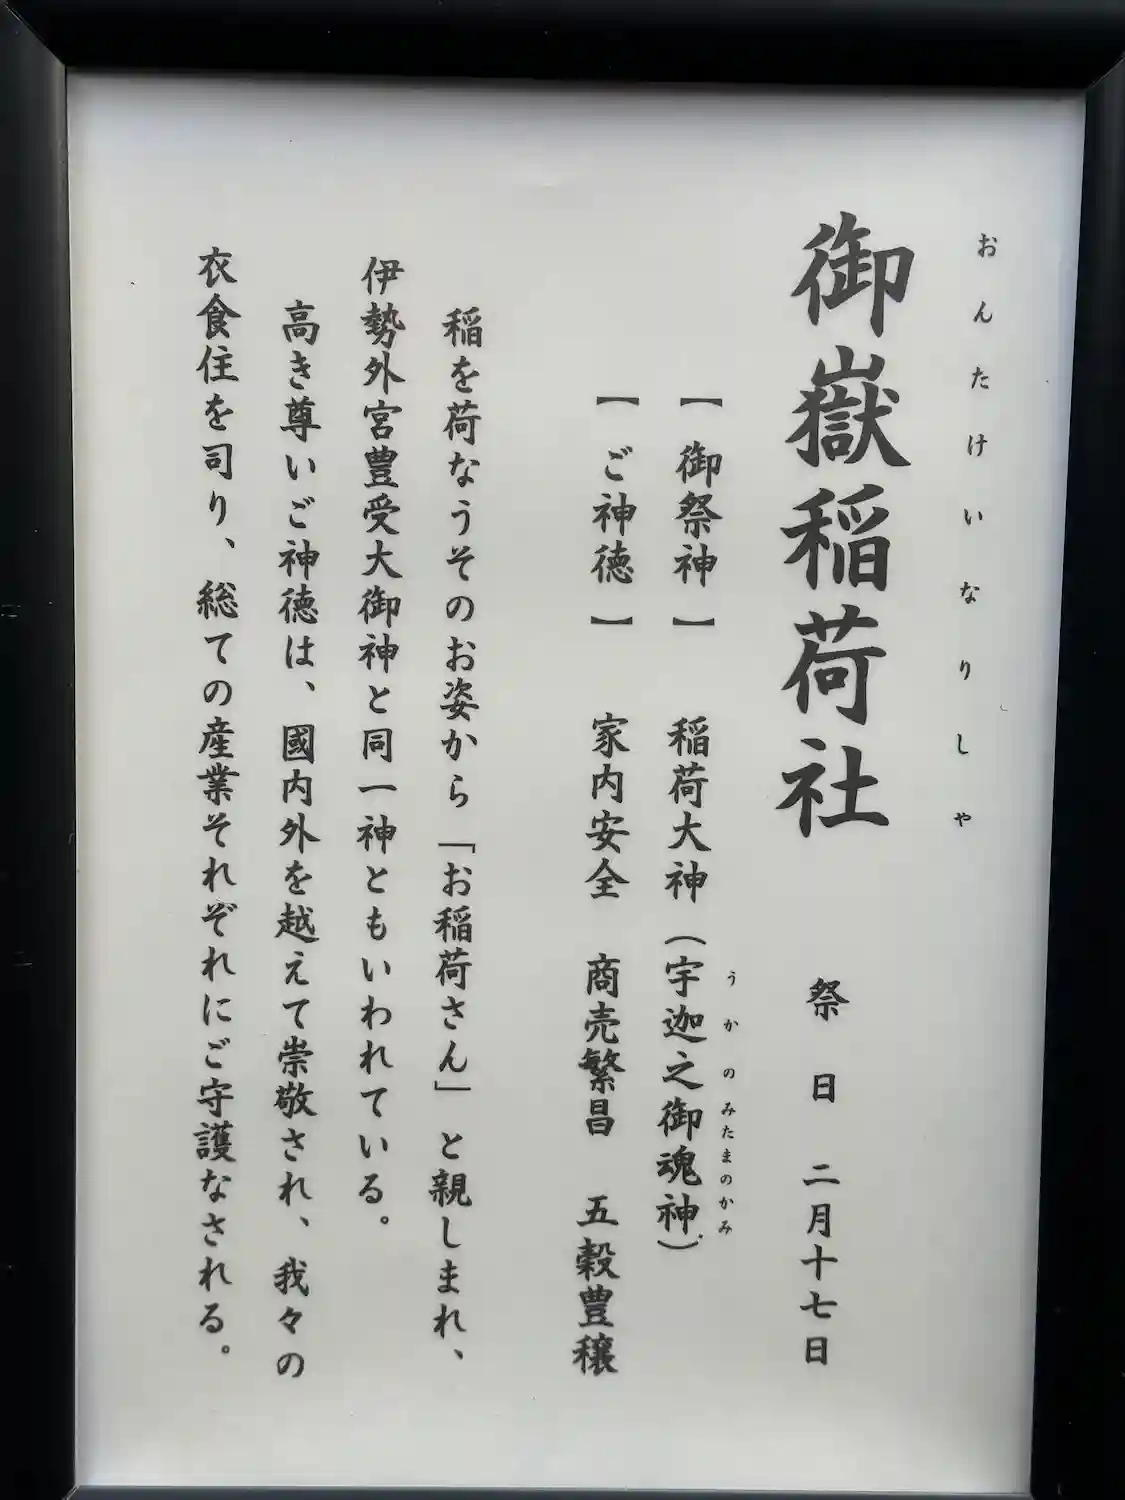 おんたけいなりしゃ
御嶽稲荷社　祭日　二月十七日
【御祭神】　稲荷大神（宇迦之御魂神）
うかのみたまのかみ
【ご神徳】　家内安全　商売繁昌　五穀豊穣
稲を荷なうそのお姿から「お稲荷さん」と親しまれ、
伊勢外宮豊受大御神と同一神ともいわれている。
高き尊いご神徳は、國内外を越えて崇敬され、我々の
衣食住を司り、総ての産業それぞれにご守護なされる。